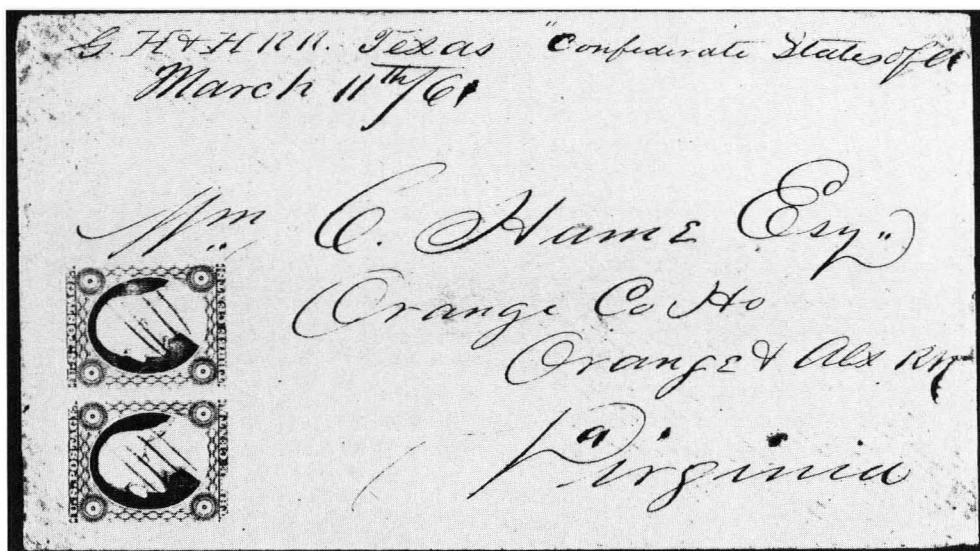 G. H & H RR. Texas "Confederate States of A
March 11th/61
Wm C. Hume Esq.
Orange Co Ho
Orange & Alx RR
Virginia